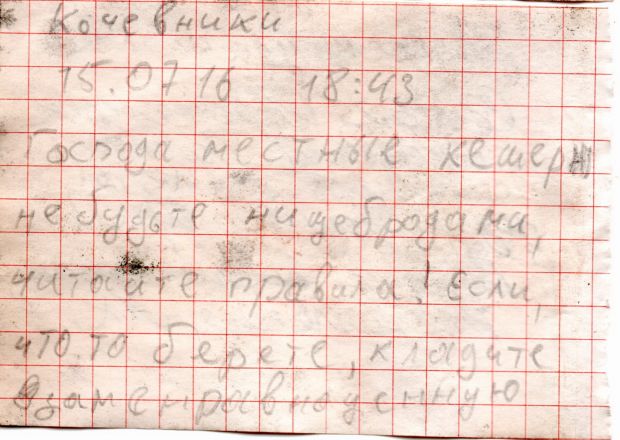 Кочевники
15.07.16 18:43
Господа местные кешеры
не будьте нищебродами,
читайте правила! Если,
что-то берете, кладите
взамен равноценную